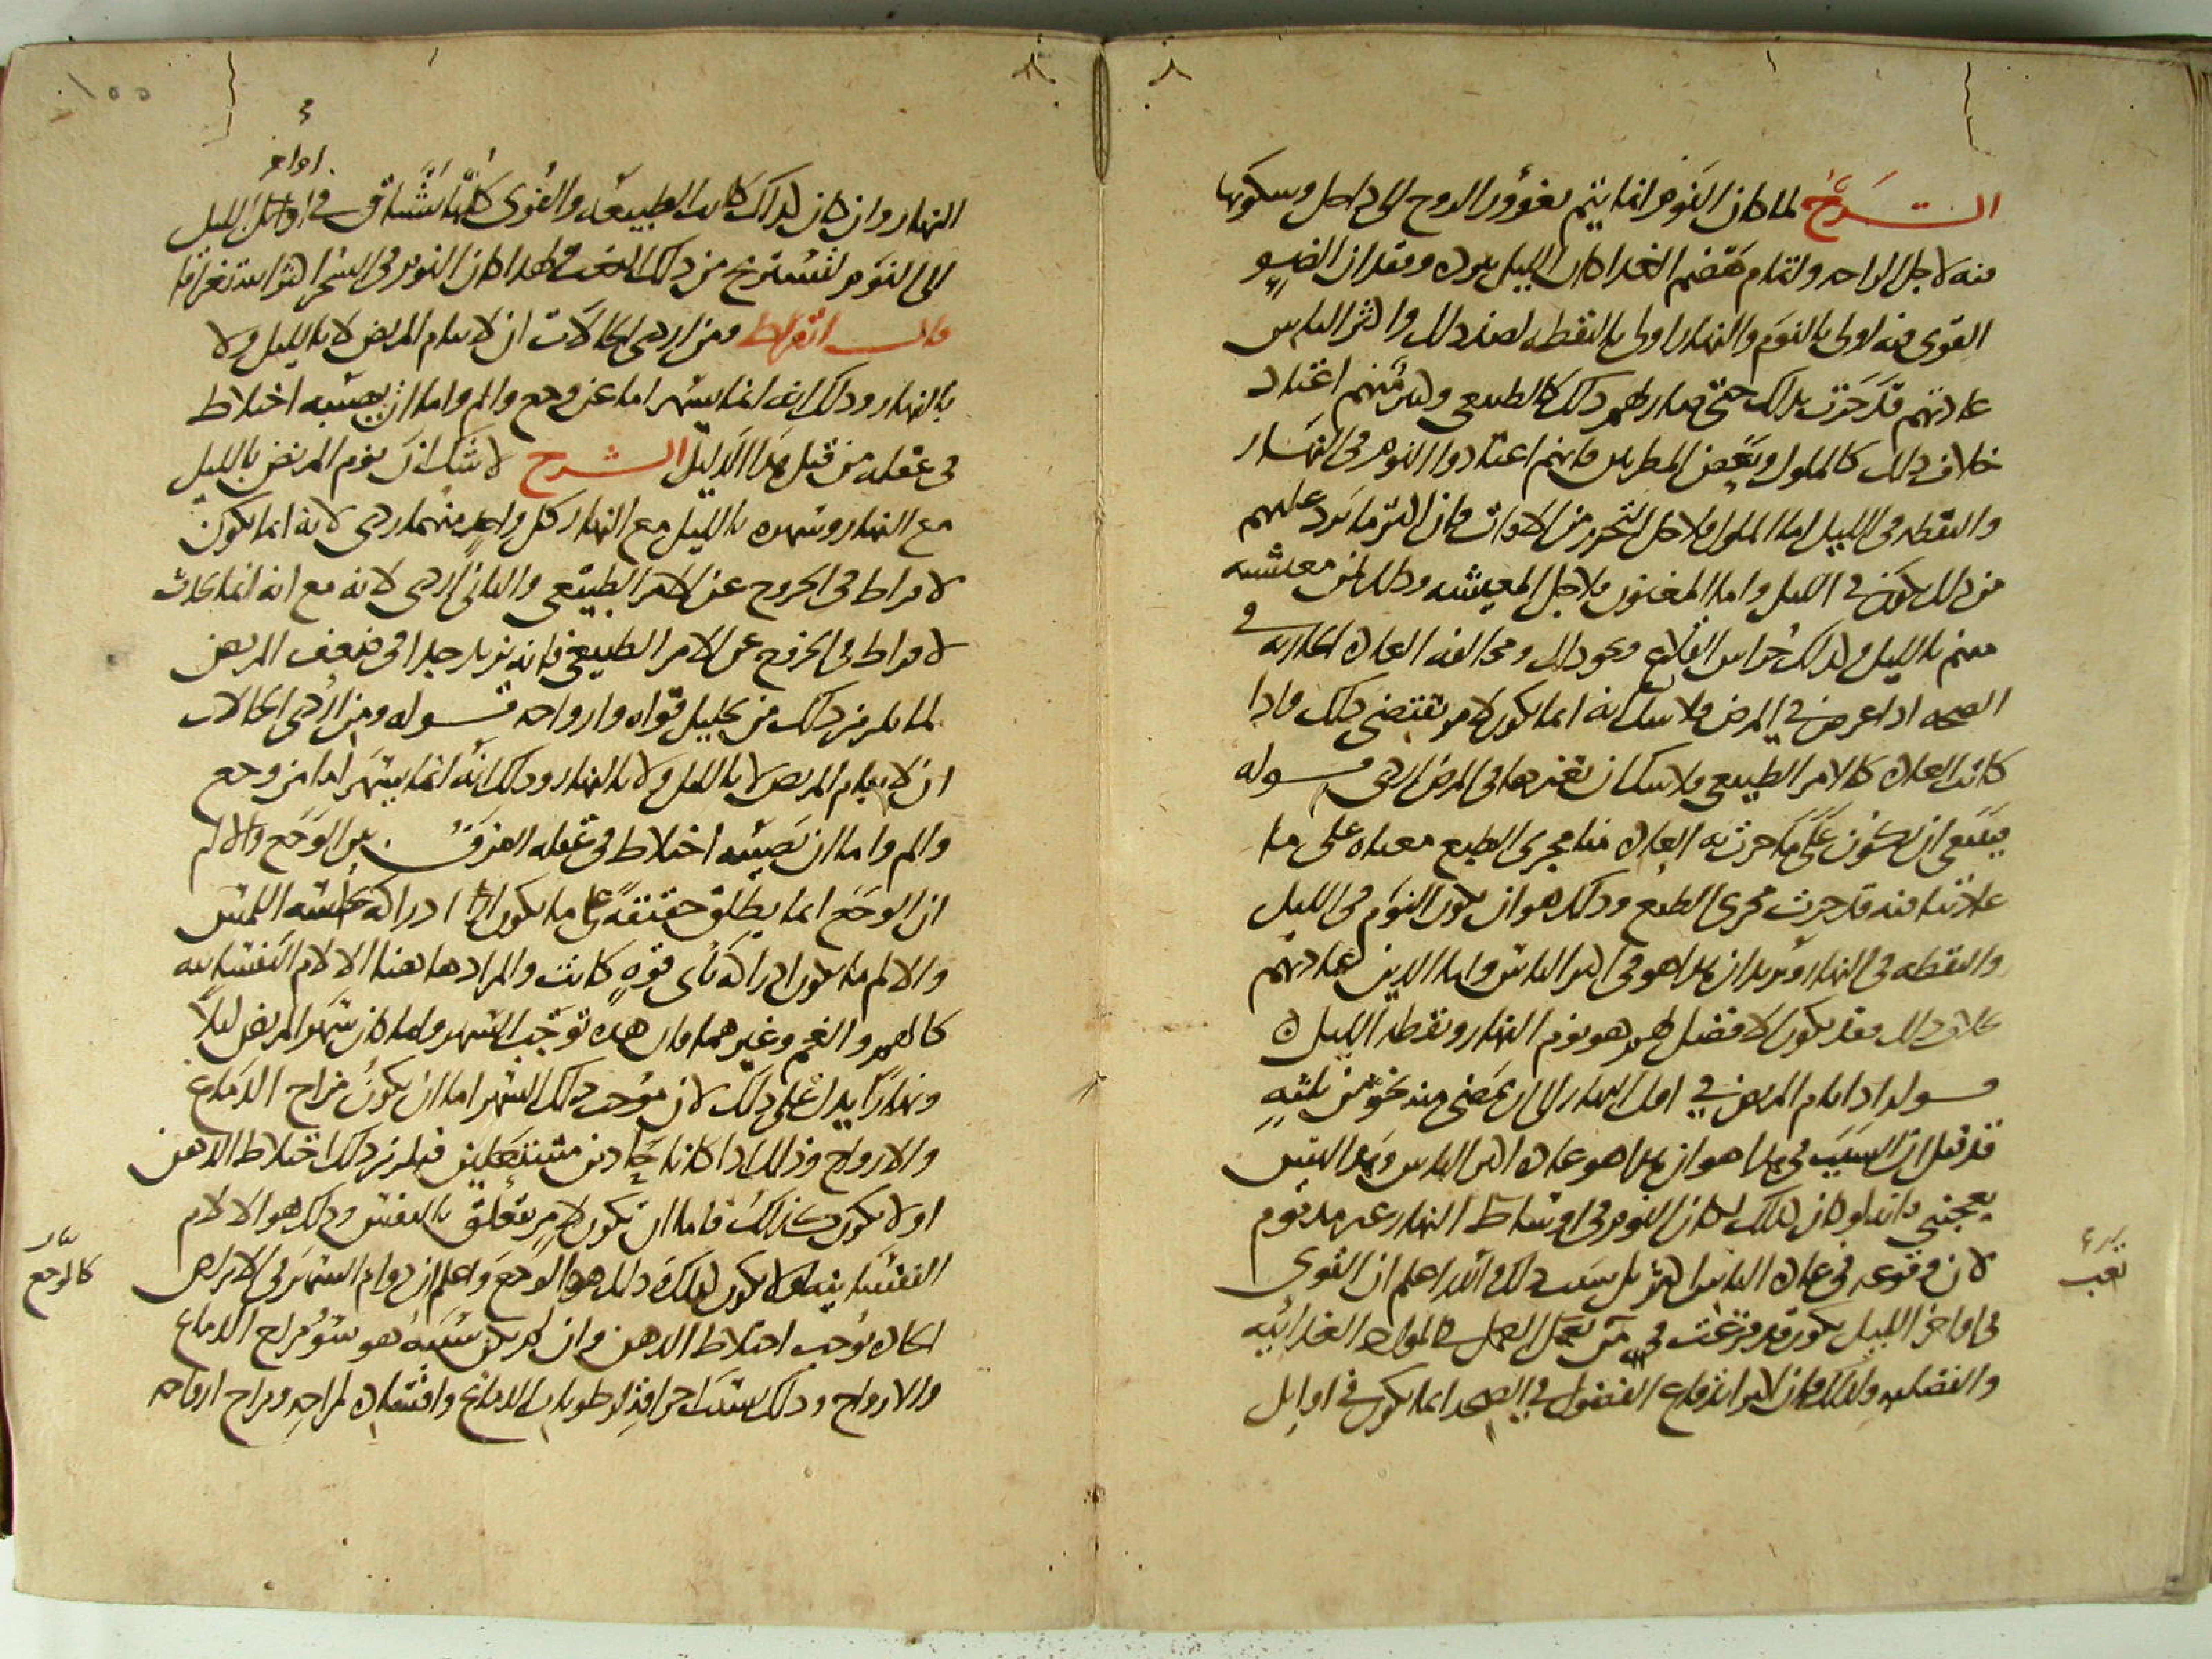 الشرح لما كان النوم انما يتم بغوور الروح الى داخل وسكونها
فيه لاجل الراحه ولتمام هضم الغذا كان الليل لبرده وفقدان الضو
القوى فيه اولى بالنوم والنهار اولى باليقظه لضد ذلك واكثر الناس
عادتهم قد جرت بذلك حتى صار لهم ذلك كالطبيعى وكثير منهم اعتاد
خلاف ذلك كالملوك وبعض المطربين فانهم اعتادوا النوم فى النهار
واليقظه فى الليل اما الملوك فلاجل التحرز من الافات فان اكثر ما يرد عليهم
من ذلك يكون فى الليل واما المغنون فلاجل المعيشه وذلك لان معيشه
منهم بالليل وكذلك حراس القلاع ونحو ذلك ومخالفه العاده الجاريه فى
الصحه اذا عرض فى المرض فلا شك انه انما يكون لامر يقتضى ذلك فاذا
كانت العاده كالامر الطبيعى فلا شك ان تغيرها فى المرض ردى قوله
ينبغى ان يكون على ما جرت به العاده منا مجرى الطبع معناه على ما
عادتنا فيه قد جرت مجرى الطبع وذلك هو ان يكون النوم فى الليل
واليقظه فى النهار ويريد ان هذا هو فى اكثر الناس واما الذين عادتهم
خلاف ذلك فقد يكون الافضل لهم هو نوم النهار ويقظه الليل
قوله اذا نام المريض فى اول النهار الى ان يمضى منه نحو من ثلثه
قد قيل ان السبب فى هذا هو ان هذا هو عاده اكثر الناس وهذا ليس
يعجبنى فانه لو كان كذلك لكان النوم فى اوساط النهار عند نوم
لان وقوعه فى عاده الناس اكثر بل سبب ذلك والله اعلم ان القوى
فى اواخر الليل يكون قد فرغت من تعب العمل فى المواد الغذائيه
والفضليه ولذلك فان اكثر اندفاع الفضول فى الصحه انما يكون فى اوايل
تعب
النهار وان كان كذلك كانت الطبيعه والقوى كلها تشتاق فى اوائل الليل
اواخر
الى النوم لتستريح من ذلك التعب ولهذا كان النوم فى السحر اكثر استغراقا
قال ابقراط ومن اردى الحالات ان لا ينام المريض لا بالليل ولا
بالنهار وذلك انه انما يسهر اما من وجع والم واما ان يصيبه اختلاط
فى عقله من قبل هذا الدليل الشرح لا شك ان نوم المريض بالليل
مع النهار وسهره بالليل مع النهار كل واحد منهما ردى لانه انما يكون
لافراط فى الخروج عن الامر الطبيعى والثانى اردى لانه مع انه انما يحدث
لافراط فى الخروج عن الامر الطبيعى فانه يزيد جدا فى ضعف المريض
لما يلزم من ذلك من تحليل قواه وارواحه قوله ومن اردى الحالات
ان لا ينام المريض لا بالليل ولا بالنهار وذلك انه انما يسهر اما من وجع
والم واما ان يصيبه اختلاط فى عقله الفرق بين الوجع والالم
ان الوجع انما يطلق حقيقة على ما يكون ادراكه بحاسه اللمس
والالم ما يكون ادراكه باى قوه كانت والمراد هاهنا الالام النفسانيه
كالهم والغم وغيرهما فان هذه توجب السهر وانما كان سهر المريض ليلا
ونهارا يدل على ذلك لان موجب ذلك السهر اما ان يكون مزاج الدماغ
والارواح وذلك اذا كانا حادين مشتعلين فيلزم ذلك اختلاط الذهن
او لا يكون كذلك فاما ان يكون لامر يتعلق بالنفس وذلك هو الالام
النفسانيه او لا يكون كذلك وذلك هو الوجع واعلم ان دوام السهر فى الامراض
كالوجع
الحاده يوجب اختلاط الذهن وان لم يكن سببه هو سوء مزاج الدماغ
والارواح وذلك بسبب احراقه لرطوبات الدماغ وافساده لمزاجه ومزاج ارواحه